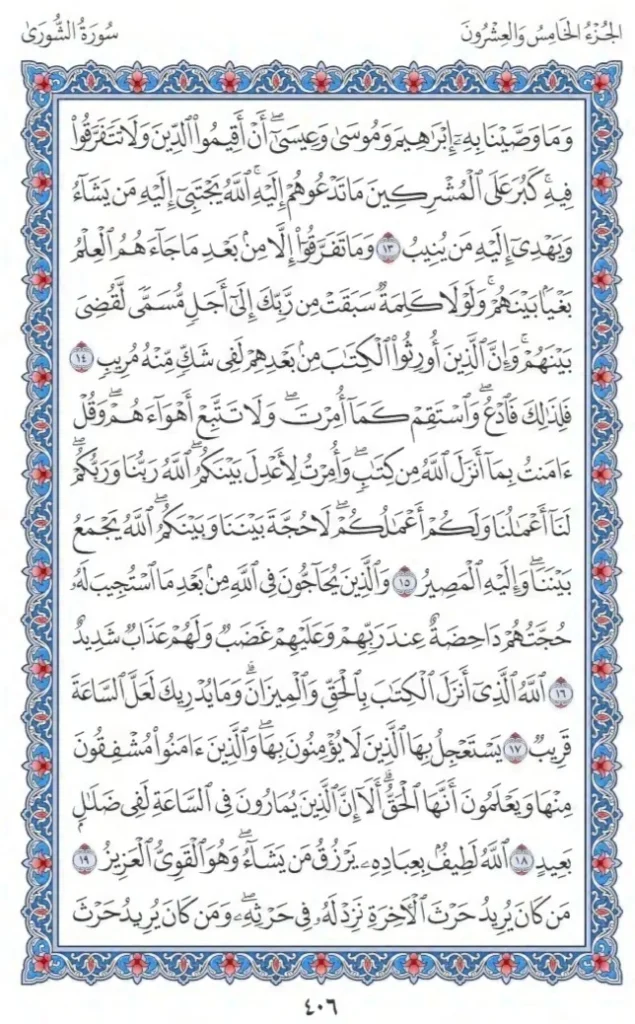 الجُزْءُ الخَامِسُ وَالعِشْرُونَ
سُورَةُ الشُّورَىٰ
وَمَا وَصَّيْنَا بِهِۦٓ إِبْرَٰهِيمَ وَمُوسَىٰ وَعِيسَىٰٓ ۖ أَنْ أَقِيمُوا۟ ٱلدِّينَ وَلَا تَتَفَرَّقُوا۟
فِيهِ ۚ كَبُرَ عَلَى ٱلْمُشْرِكِينَ مَا تَدْعُوهُمْ إِلَيْهِ ۚ ٱللَّهُ يَجْتَبِىٓ إِلَيْهِ مَن يَشَآءُ
وَيَهْدِىٓ إِلَيْهِ مَن يُنِيبُ ١٣ وَمَا تَفَرَّقُوٓا۟ إِلَّا مِنۢ بَعْدِ مَا جَآءَهُمُ ٱلْعِلْمُ
بَغْيًۢا بَيْنَهُمْ ۚ وَلَوْلَا كَلِمَةٌ سَبَقَتْ مِن رَّبِّكَ إِلَىٰٓ أَجَلٍ مُّسَمًّى لَّقُضِىَ
بَيْنَهُمْ ۚ وَإِنَّ ٱلَّذِينَ أُورِثُوا۟ ٱلْكِتَٰبَ مِنۢ بَعْدِهِمْ لَفِى شَكٍّ مِّنْهُ مُرِيبٍ ١٤
فَلِذَٰلِكَ فَٱدْعُ ۖ وَٱسْتَقِمْ كَمَآ أُمِرْتَ ۖ وَلَا تَتَّبِعْ أَهْوَآءَهُمْ ۖ وَقُلْ
ءَامَنتُ بِمَآ أَنزَلَ ٱللَّهُ مِن كِتَٰبٍ ۖ وَأُمِرْتُ لِأَعْدِلَ بَيْنَكُمُ ۖ ٱللَّهُ رَبُّنَا وَرَبُّكُمْ ۖ
لَنَآ أَعْمَٰلُنَا وَلَكُمْ أَعْمَٰلُكُمْ ۖ لَا حُجَّةَ بَيْنَنَا وَبَيْنَكُمُ ۖ ٱللَّهُ يَجْمَعُ
بَيْنَنَا ۖ وَإِلَيْهِ ٱلْمَصِيرُ ١٥ وَٱلَّذِينَ يُحَآجُّونَ فِى ٱللَّهِ مِنۢ بَعْدِ مَا ٱسْتُجِيبَ لَهُۥ
حُجَّتُهُمْ دَاحِضَةٌ عِندَ رَبِّهِمْ وَعَلَيْهِمْ غَضَبٌ وَلَهُمْ عَذَابٌ شَدِيدٌ
١٦ ٱللَّهُ ٱلَّذِىٓ أَنزَلَ ٱلْكِتَٰبَ بِٱلْحَقِّ وَٱلْمِيزَانَ ۗ وَمَا يُدْرِيكَ لَعَلَّ ٱلسَّاعَةَ
قَرِيبٌ ١٧ يَسْتَعْجِلُ بِهَا ٱلَّذِينَ لَا يُؤْمِنُونَ بِهَا ۖ وَٱلَّذِينَ ءَامَنُوا۟ مُشْفِقُونَ
مِنْهَا وَيَعْلَمُونَ أَنَّهَا ٱلْحَقُّ ۗ أَلَآ إِنَّ ٱلَّذِينَ يُمَارُونَ فِى ٱلسَّاعَةِ لَفِى ضَلَٰلٍۭ
بَعِيدٍ ١٨ ٱللَّهُ لَطِيفٌۢ بِعِبَادِهِۦ يَرْزُقُ مَن يَشَآءُ ۖ وَهُوَ ٱلْقَوِىُّ ٱلْعَزِيزُ ١٩
مَن كَانَ يُرِيدُ حَرْثَ ٱلْءَاخِرَةِ نَزِدْ لَهُۥ فِى حَرْثِهِۦ ۖ وَمَن كَانَ يُرِيدُ حَرْثَ
٤٠٦